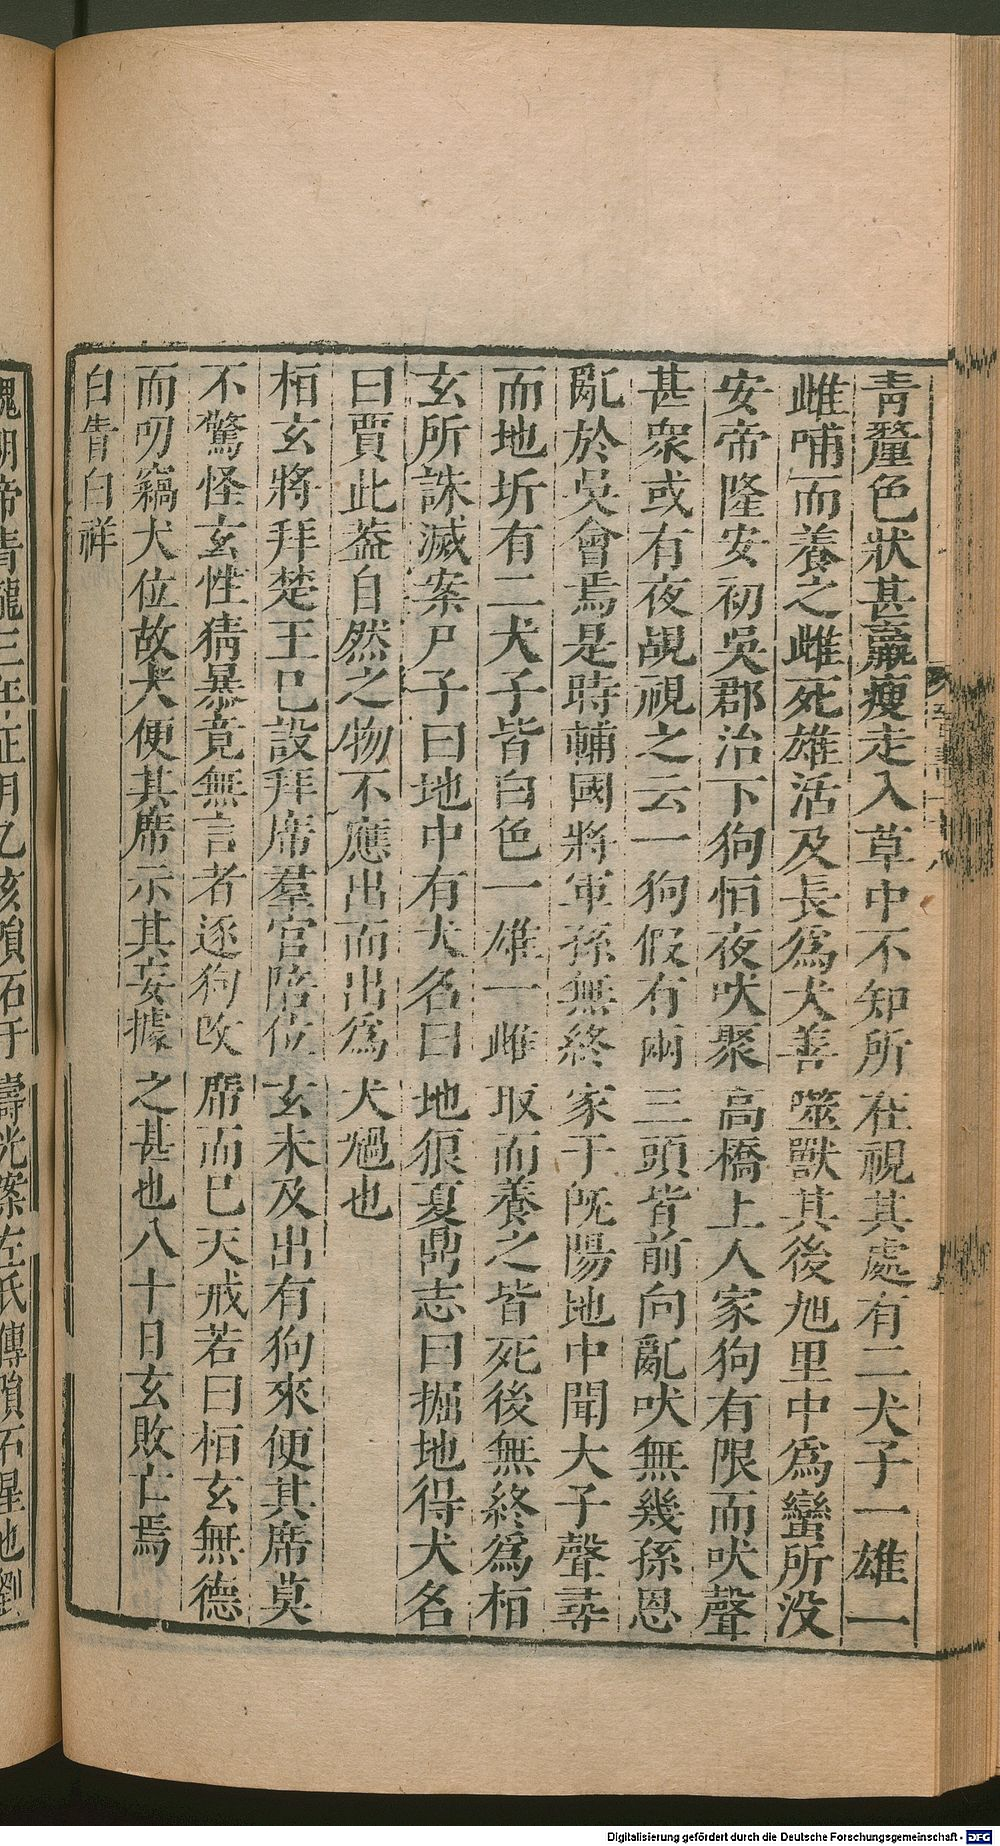 青黧色狀甚羸瘦走入草中不知所在視其處有二犬子一雄一
雌哺而養之雌死雄活及長為犬善噬獸其後旭里中為蠻所没
安帝隆安初吳郡治下狗恒夜吠聚高橋上人家狗有限而吠聲
甚衆或有夜覘視之云一狗假有兩三頭皆前向亂吠無幾孫恩
亂於吳會焉是時輔國將軍孫無終家于旣陽地中聞犬子聲尋
而地坼有二犬子皆白色一雄一雌取而養之皆死後無終為桓
玄所誅滅案尸子曰地中有犬名曰地狼夏鼎志曰掘地得犬名
曰賈此葢自然之物不應出而出為犬禍也
桓玄將拜楚王巳設拜席羣官陪位玄未及出有狗來便其席莫
不驚怪玄性猜暴竟無言者逐狗改席而巳天戒若曰桓玄無德
而叨竊大位故犬便其席示其妄據之甚也八十日玄敗亡焉
白眚白祥
魏明帝青龍三年正月乙亥隕石于壽光案左氏傳隕石星也劉
Digitalisierung gefördert durch die Deutsche Forschungsgemeinschaft - DFG